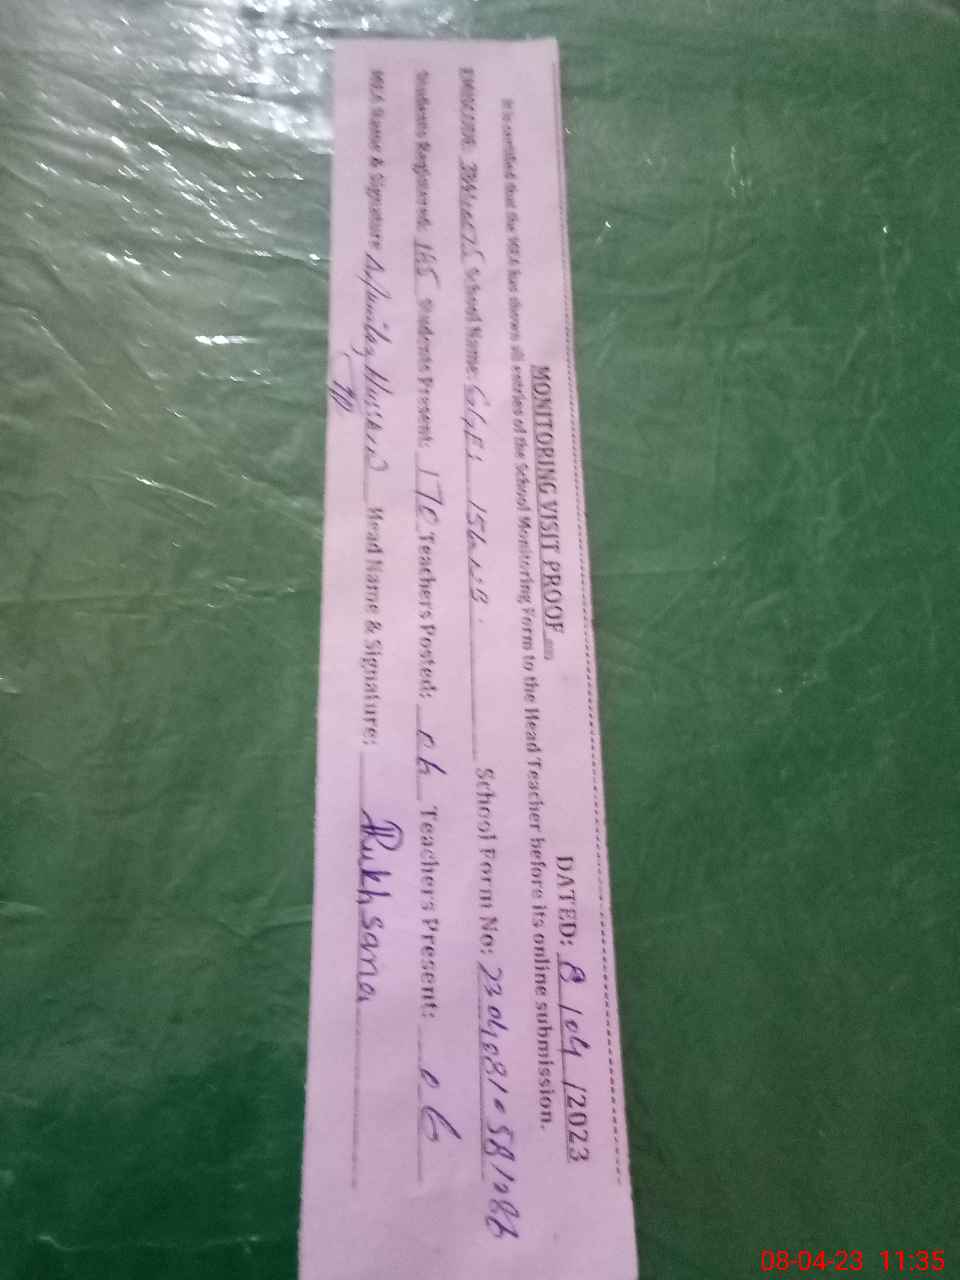 MONITORING VISIT PROOF
DATED: 8/04/2023
It is certified that the MEA has shown all entries of the School Monitoring Form to the Head Teacher before its online submission.
EMISCODE: School Name: School Form No:
Students Registered: Students Present: 170 Teachers Posted: 06 Teachers Present: 06
MEA Name & Signature Head Name & Signature: Rukhsana
08-04-23 11:35